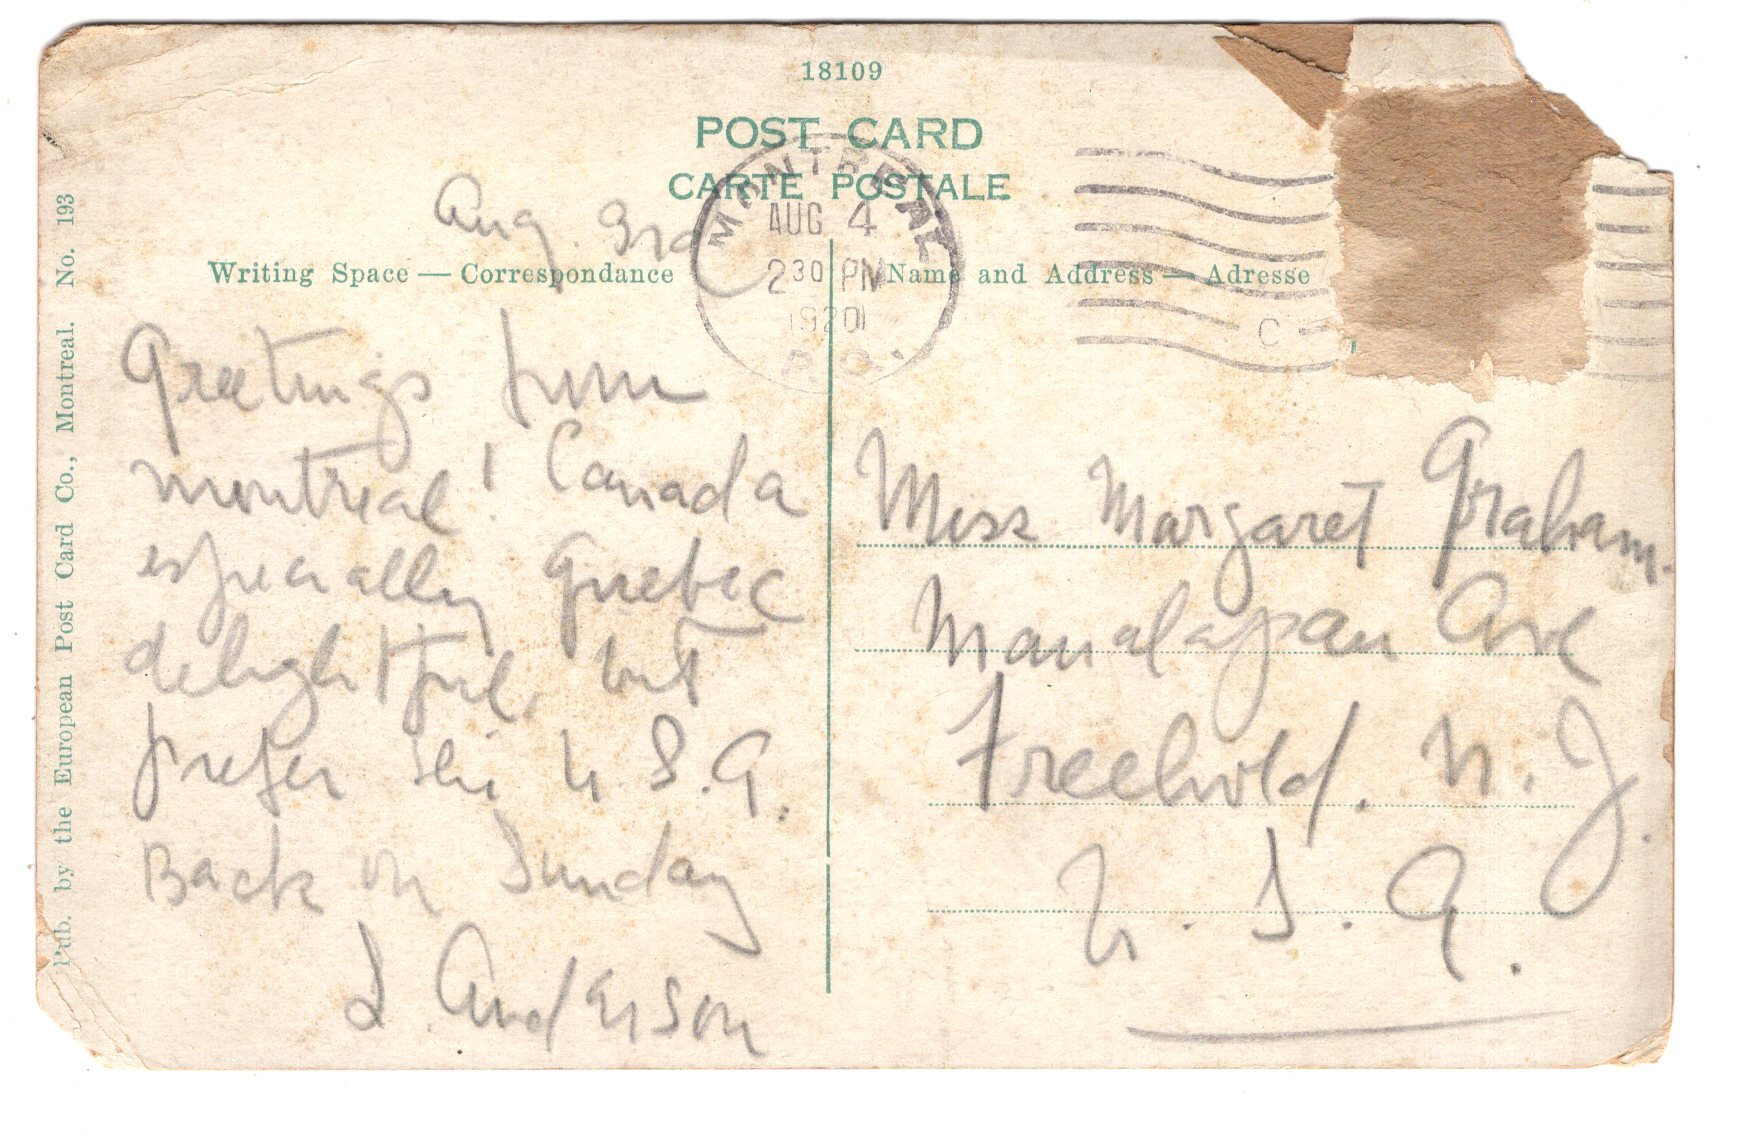 18109
POST CARD
CARTE POSTALE
MONTREAL
AUG 4
2 30 PM
1920
P.Q.
Aug. 3rd
Writing Space — Correspondance
Name and Address — Adresse
C
Greetings from
Montreal! Canada
especially Quebec
delightful, but
prefer the U.S.A.
Back on Sunday
L. Anderson
Miss Margaret Graham.
Manalapan Ave
Freehold. N.J.
U.S.A.
Pub. by the European Post Card Co., Montreal. No. 193